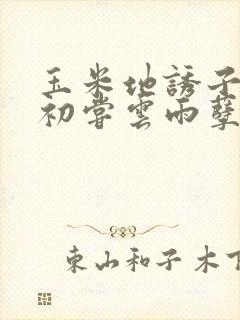 玉米地誘子
初嘗雲雨孽
東山和子木下